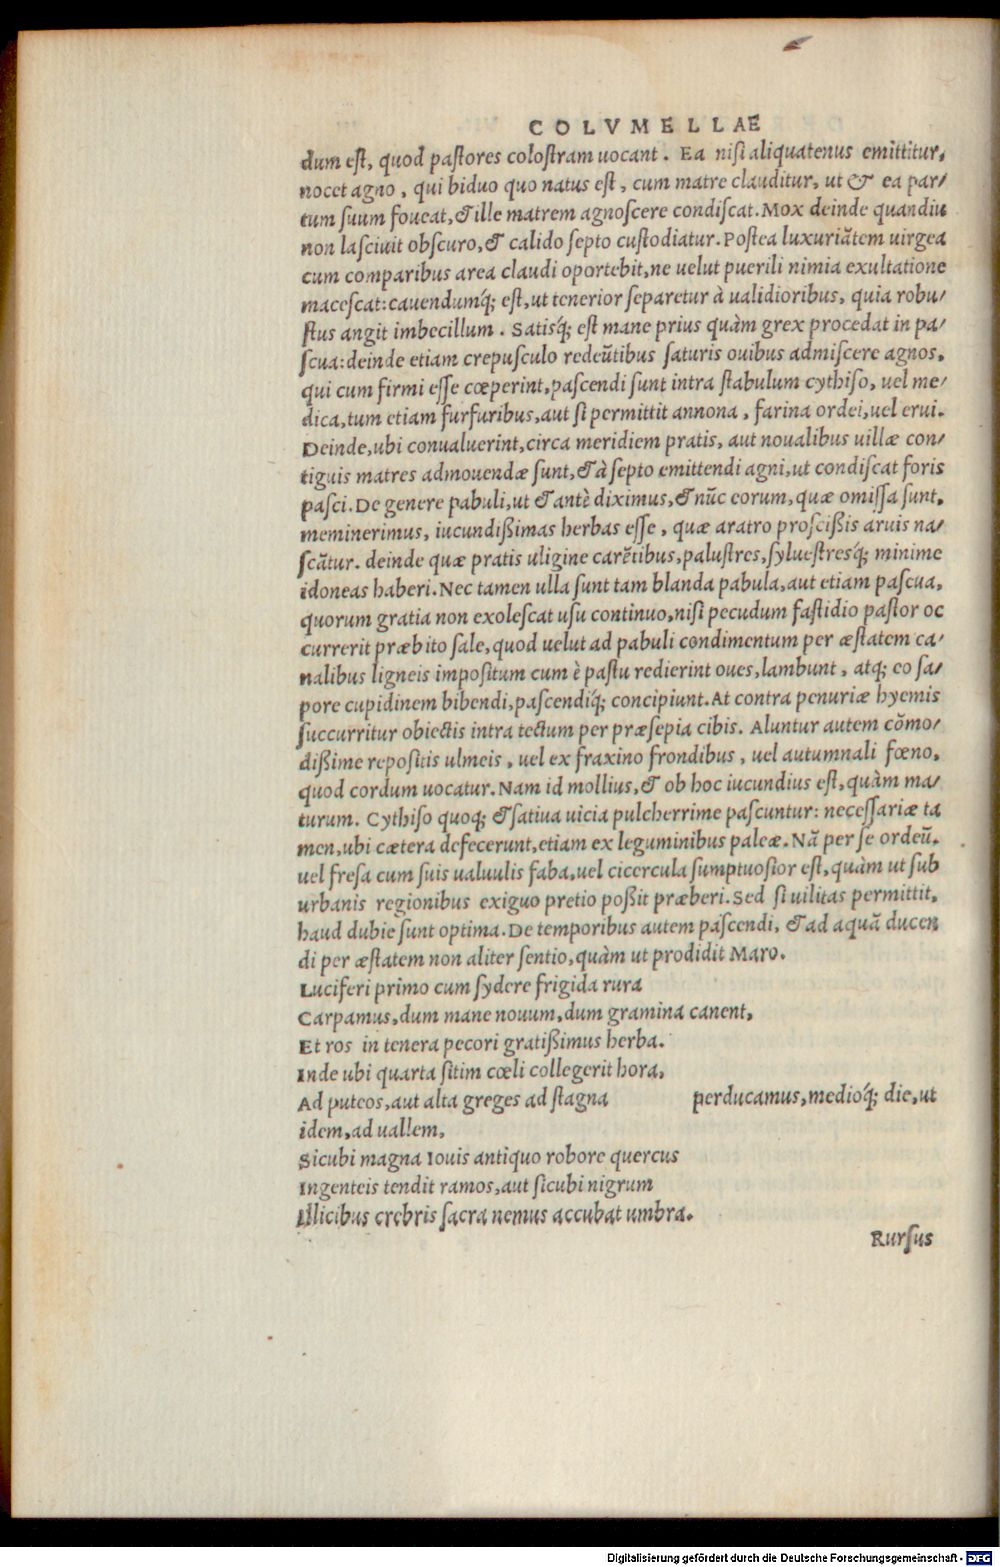 COLVMELLAE
dum eſt, quod paſtores coloſtram uocant. Ea niſi aliquatenus emittitur,
nocet agno, qui biduo quo natus eſt, cum matre clauditur, ut & ea par/
tum ſuum foueat, & ille matrem agnoſcere condiſcat. Mox deinde quandiu
non laſciuit obſcuro, & calido ſepto cuſtodiatur. Poſtea luxuriãtem uirgea
cum comparibus area claudi oportebit, ne uelut puerili nimia exultatione
maceſcat: cauendumq́; eſt, ut tenerior ſeparetur à ualidioribus, quia robu/
ſtus angit imbecillum. Satisq́; eſt mane prius quàm grex procedat in pa/
ſcua: deinde etiam crepuſculo redeũtibus ſaturis ouibus admiſcere agnos,
qui cum firmi eſſe cœperint, paſcendi ſunt intra ſtabulum cythiſo, uel me/
dica, tum etiam furfuribus, aut ſi permittit annona, farina ordei, uel erui.
Deinde, ubi conualuerint, circa meridiem pratis, aut noualibus uillæ con/
tiguis matres admouendæ ſunt, & à ſepto emittendi agni, ut condiſcat foris
paſci. De genere pabuli, ut & antè diximus, & nũc eorum, quæ omiſſa ſunt,
meminerimus, iucundißimas herbas eſſe, quæ aratro proſcißis aruis na/
ſcãtur. deinde quæ pratis uligine carẽtibus, paluſtres, ſylueſtresq́; minime
idoneas haberi. Nec tamen ulla ſunt tam blanda pabula, aut etiam paſcua,
quorum gratia non exoleſcat uſu continuo, niſi pecudum faſtidio paſtor oc
currerit præbito ſale, quod uelut ad pabuli condimentum per æſtatem ca/
nalibus ligneis impoſitum cum è paſtu redierint oues, lambunt, atq; eo ſa/
pore cupidinem bibendi, paſcendiq́; concipiunt. At contra penuriæ hyemis
ſuccurritur obiectis intra tectum per præſepia cibis. Aluntur autem cõmo/
dißime repoſitis ulmeis, uel ex fraxino frondibus, uel autumnali fœno,
quod cordum uocatur. Nam id mollius, & ob hoc iucundius eſt, quàm ma/
turum. Cythiſo quoq; & ſatiua uicia pulcherrime paſcuntur: neceſſariæ ta
men, ubi cætera defecerunt, etiam ex leguminibus paleæ. Nã per ſe ordeũ,
uel freſa cum ſuis ualuulis faba, uel cicercula ſumptuoſior eſt, quàm ut ſub
urbanis regionibus exiguo pretio poßit præberi. Sed ſi uilitas permittit,
haud dubie ſunt optima. De temporibus autem paſcendi, & ad aquã ducen
di per æſtatem non aliter ſentio, quàm ut prodidit Maro.
Luciferi primo cum ſydere frigida rura
Carpamus, dum mane nouum, dum gramina canent,
Et ros in tenera pecori gratißimus herba.
Inde ubi quarta ſitim cœli collegerit hora,
Ad puteos, aut alta greges ad ſtagna perducamus, medioq́; die, ut
idem, ad uallem,
Sicubi magna Iouis antiquo robore quercus
Ingenteis tendit ramos, aut ſicubi nigrum
Illicibus crebris ſacra nemus accubat umbra.
Rurſus
Digitalisierung gefördert durch die Deutsche Forschungsgemeinschaft - DFG